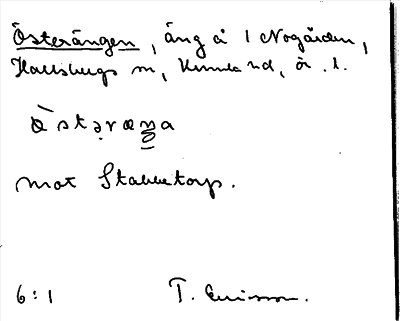 Österängen, äng å 1 Nogården,
Hallsbergs sn, Kumla hd, ör. l.
Ö̀stəræŋa
mot Stabbetorp.
6:1 T. Ericsson.